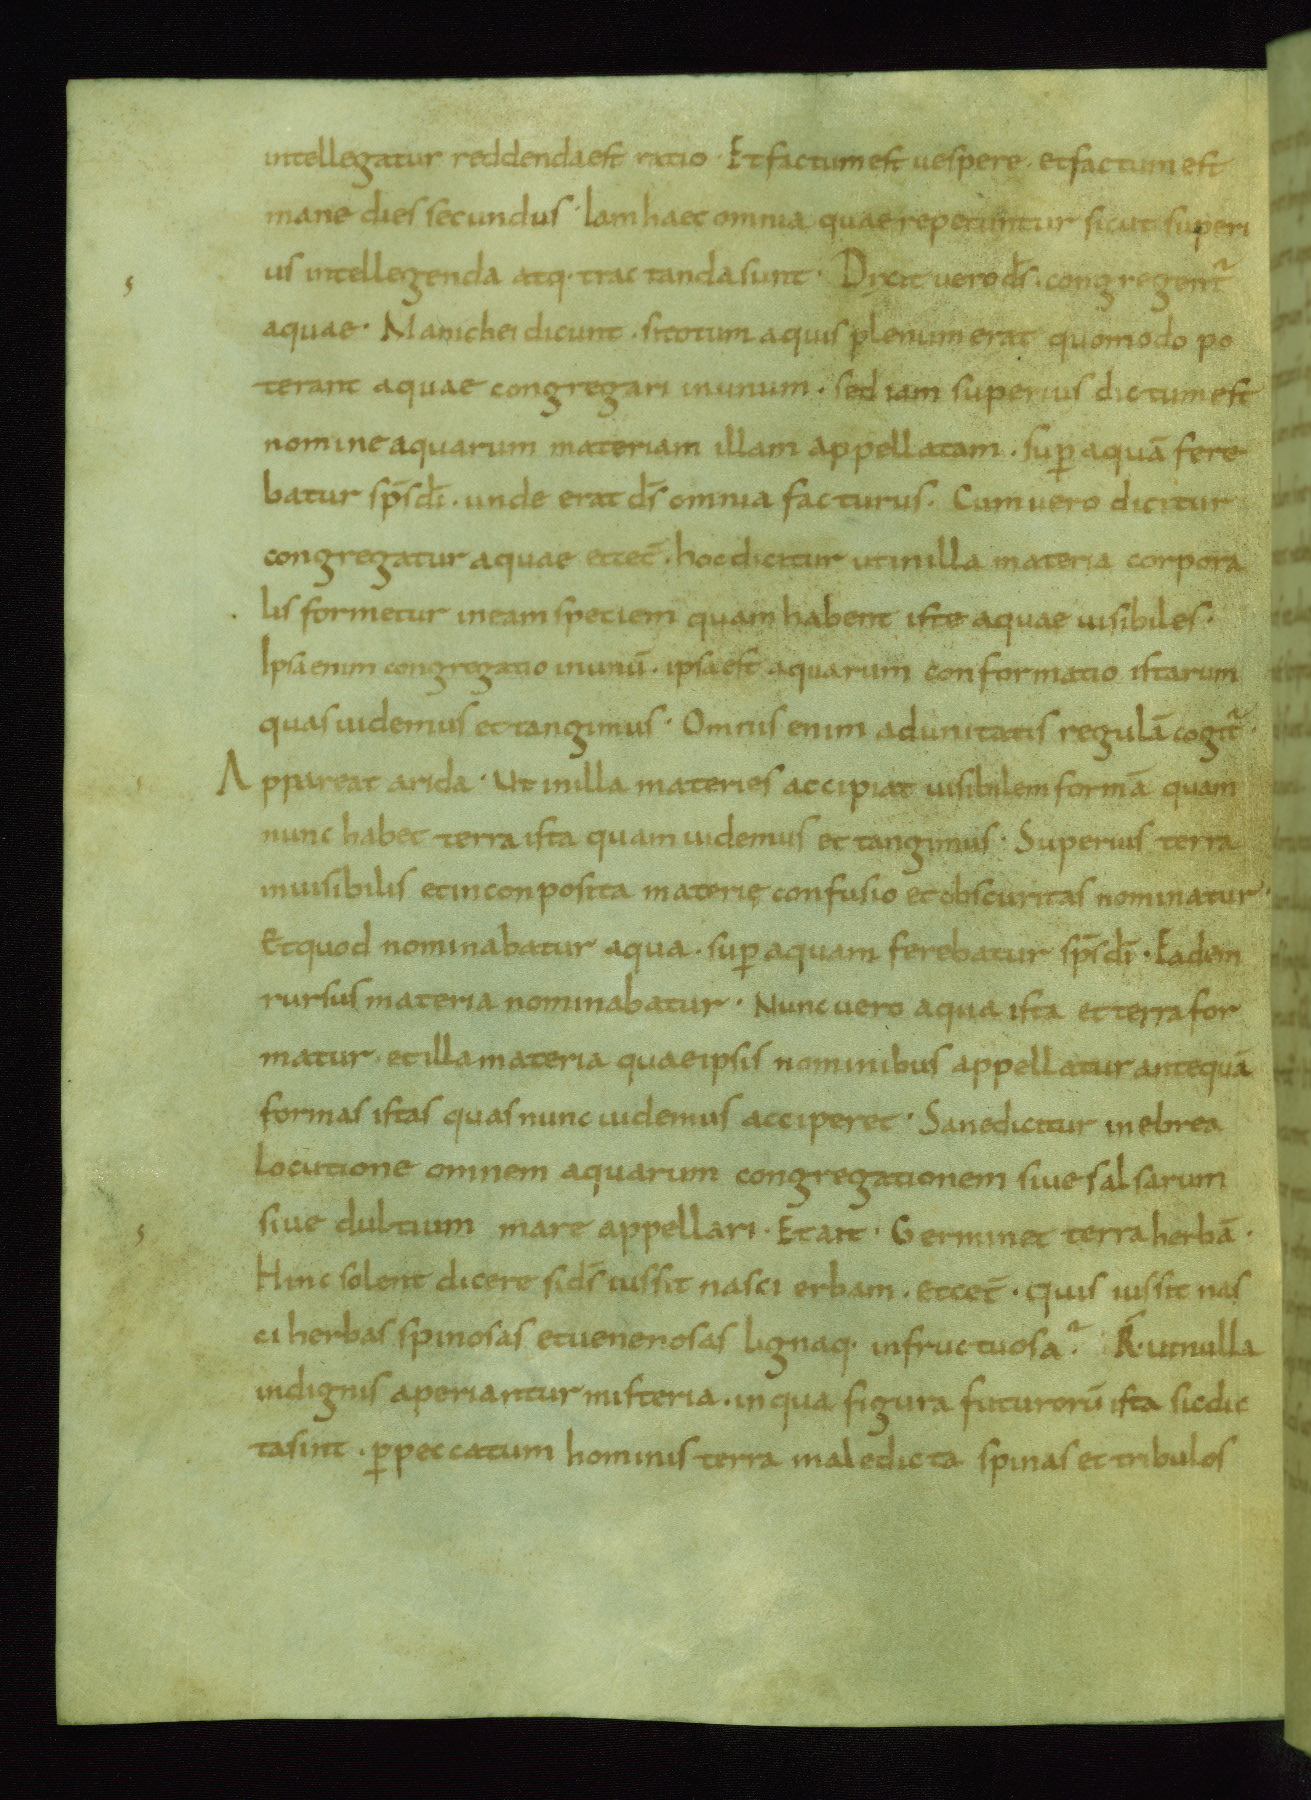 intellegatur reddenda est ratio · Et factum est uespere · et factum est
mane dies secundus · Iam haec omnia quae repetuntur sicut superi
us intellegenda atq· tractanda sunt · Dixit uero d̄s · congregent̃
aquae · Manichei dicunt · si totum aquis plenum erat quomodo po
terant aquae congregari in unum · sed iam superius dictum est
nomine aquarum materiam illam appellatam · suꝑ aquā fere
batur sp̄s dī · unde erat d̄s omnia facturus · Cum uero dicitur
congregatur aquae et cet̄ · hoc dicitur ut in illa materia corpora
lis formetur in eam speciem quam habent iste aquae uisibiles ·
Ipsa enim congregatio in unū · ipsa est aquarum conformatio istarum
quas uidemus et tangimus · Omnis enim ad unitatis regulā cogit̃ ·
Appareat arida · Ut in illa materies accipiat uisibilem formā quam
nunc habet terra ista quam uidemus et tangimus · Superius terra
inuisibilis et inconposita materię confusio et obscuritas nominatur ·
Et quod nominabatur aqua · suꝑ aquam ferebatur sp̄s dī · Eadem
rursus materia nominabatur · Nunc uero aqua ista et terra for
matur · et illa materia quae ipsis nominibus appellatur antequā
formas istas quas nunc uidemus acciperet · Sane dicitur in ebrea
locutione omnem aquarum congregationem siue salsarum
siue dultium mare appellari · Et ait · Germinet terra herbā ·
Hinc solent dicere si d̄s iussit nasci erbam · et cet̄ · quis iussit nas
ci herbas spinosas et uenenosas lignaq· infructuosa · R̄ · ut nulla
indignis aperiantur misteria · in qua figura futurorū ista sic dic
ta sint · ꝑ peccatum hominis terra maledicta spinas et tribulos